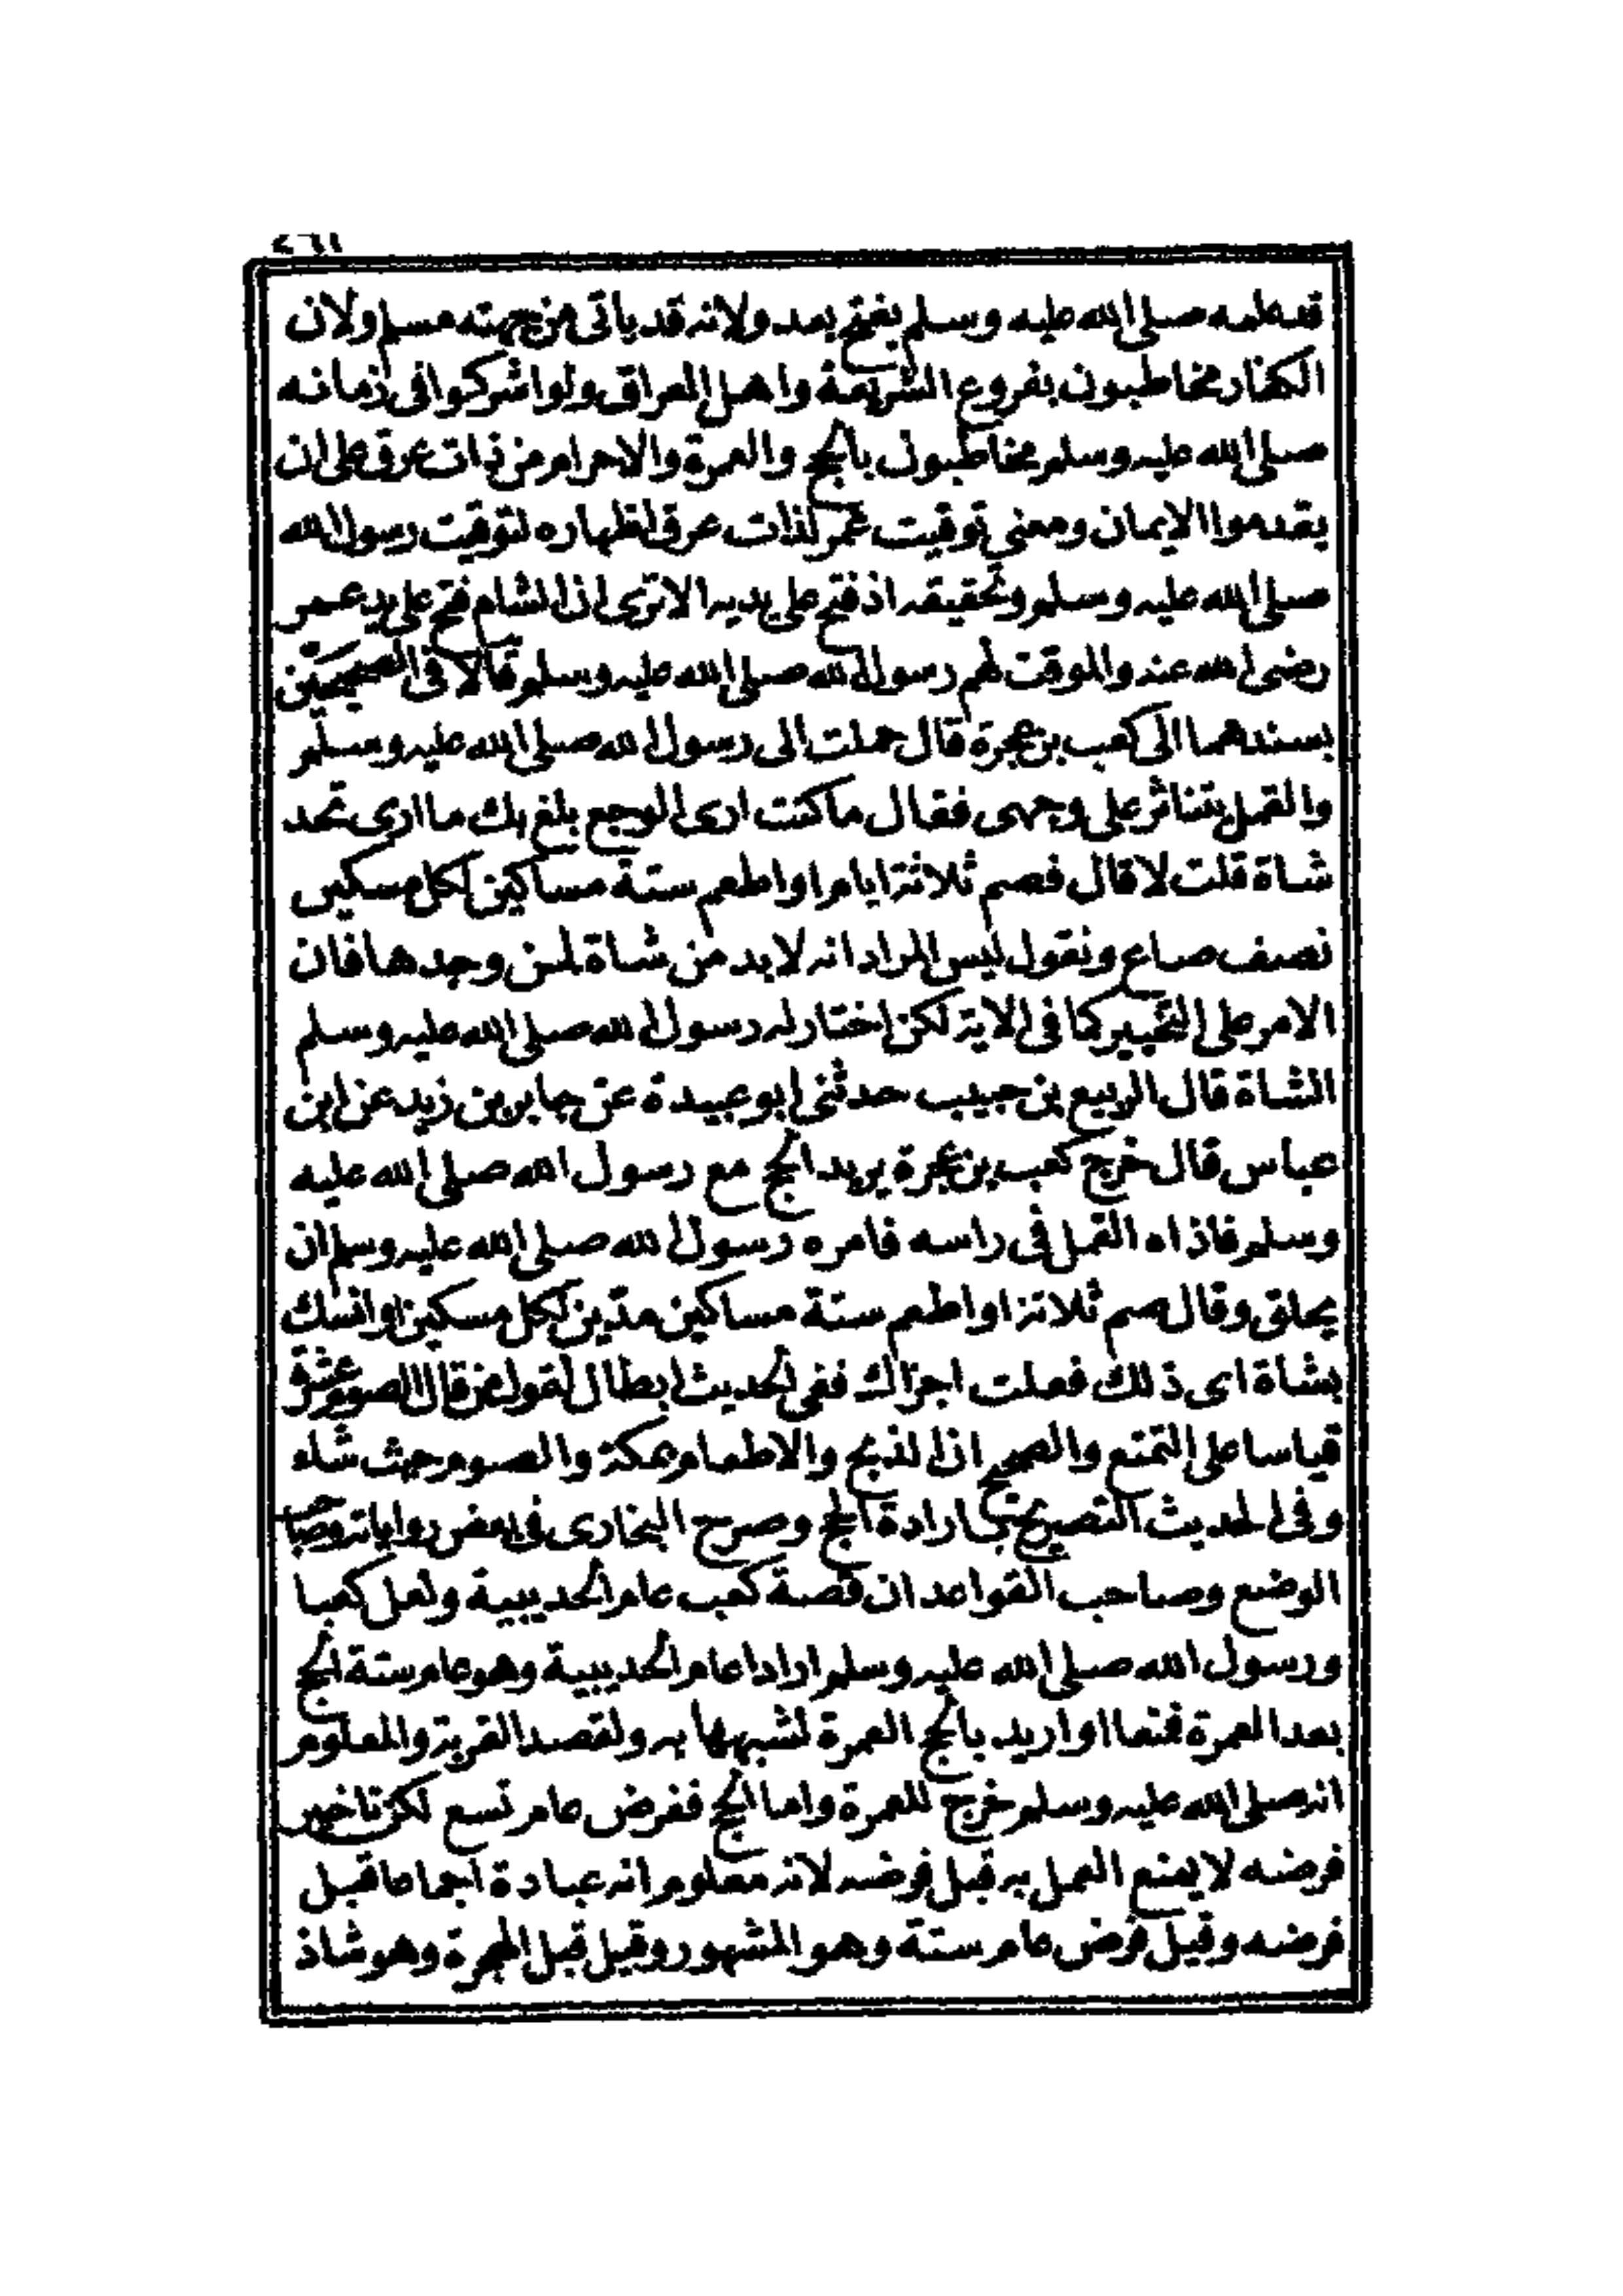 قد علمه صلى الله عليه وسلم بفتح بعد ولانه قد ياتى من جهته مسلم ولان
الكفار مخاطبون بفروع الشريعة واهل العراق ولو اشركوا فى زمانه
صلى الله عليه وسلم مخاطبون بالحج والعمرة والاحرام من ذات عرق على ان
يقدموا الايمان ومعنى توقيت عمر لذات عرق اظهاره لتوقيت رسول الله
صلى الله عليه وسلم وتحقيقه اذ فتح على يديه الا ترى ان الشام فتح على يد عمر
رضى الله عنه والموقت لهم رسول الله صلى الله عليه وسلم قالا فى الصحيحين
بسندهما الى كعب بن عجرة قال حملت الى رسول الله صلى الله عليه وسلم
والقمل يتناثر على وجهى فقال ما كنت ارى الوجع بلغ بك ما ارى تجد
شاة قلت لا قال فصم ثلاثة ايام او اطعم ستة مساكين لكل مسكين
نصف صاع ونقول ليس المراد انه لا بد من شاة لمن وجدها فان
الامر على التخيير كما فى الاية لكن اختار له رسول الله صلى الله عليه وسلم
الشاة قال الربيع بن حبيب حدثنى ابو عبيدة عن جابر بن زيد عن ابن
عباس قال خرج كعب بن عجرة يريد الحج مع رسول الله صلى الله عليه
وسلم فاذاه القمل فى راسه فامره رسول الله صلى الله عليه وسلم ان
يحلق وقال صم ثلاثة او اطعم ستة مساكين مدّين لكل مسكين او انسك
بشاة اى ذلك فعلت اجزاك ففى الحديث ابطال لقول من قال الصوم عشرة
قياسا على التمتع والصحيح ان الذبح والاطعام بمكة والصوم حيث شاء
وفى الحديث التصريح بارادة الحج وصرح البخارى فى بعض رواياته وصاحب
الوضع وصاحب القواعد ان قصة كعب عام الحديبية ولعل كعبا
ورسول الله صلى الله عليه وسلم ارادا عام الحديبية وهو عام ستة الحج
بعد العمرة فمنعا او اريد بالحج العمرة لشبهها به ولقصد القربة والمعلوم
انه صلى الله عليه وسلم خرج للعمرة واما الحج ففرض عام تسع لكن تاخير
فرضه لا يمنع العمل به قبل فرضه لانه معلوم انه عبادة اجماعا قبل
فرضه وقيل فرض عام ستة وهو المشهور وقيل قبل الهجرة وهو شاذ